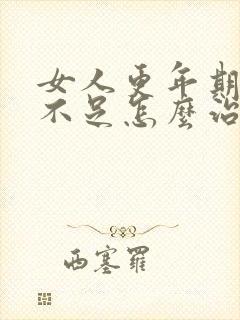 女人更年期
不足怎麼治
西塞羅